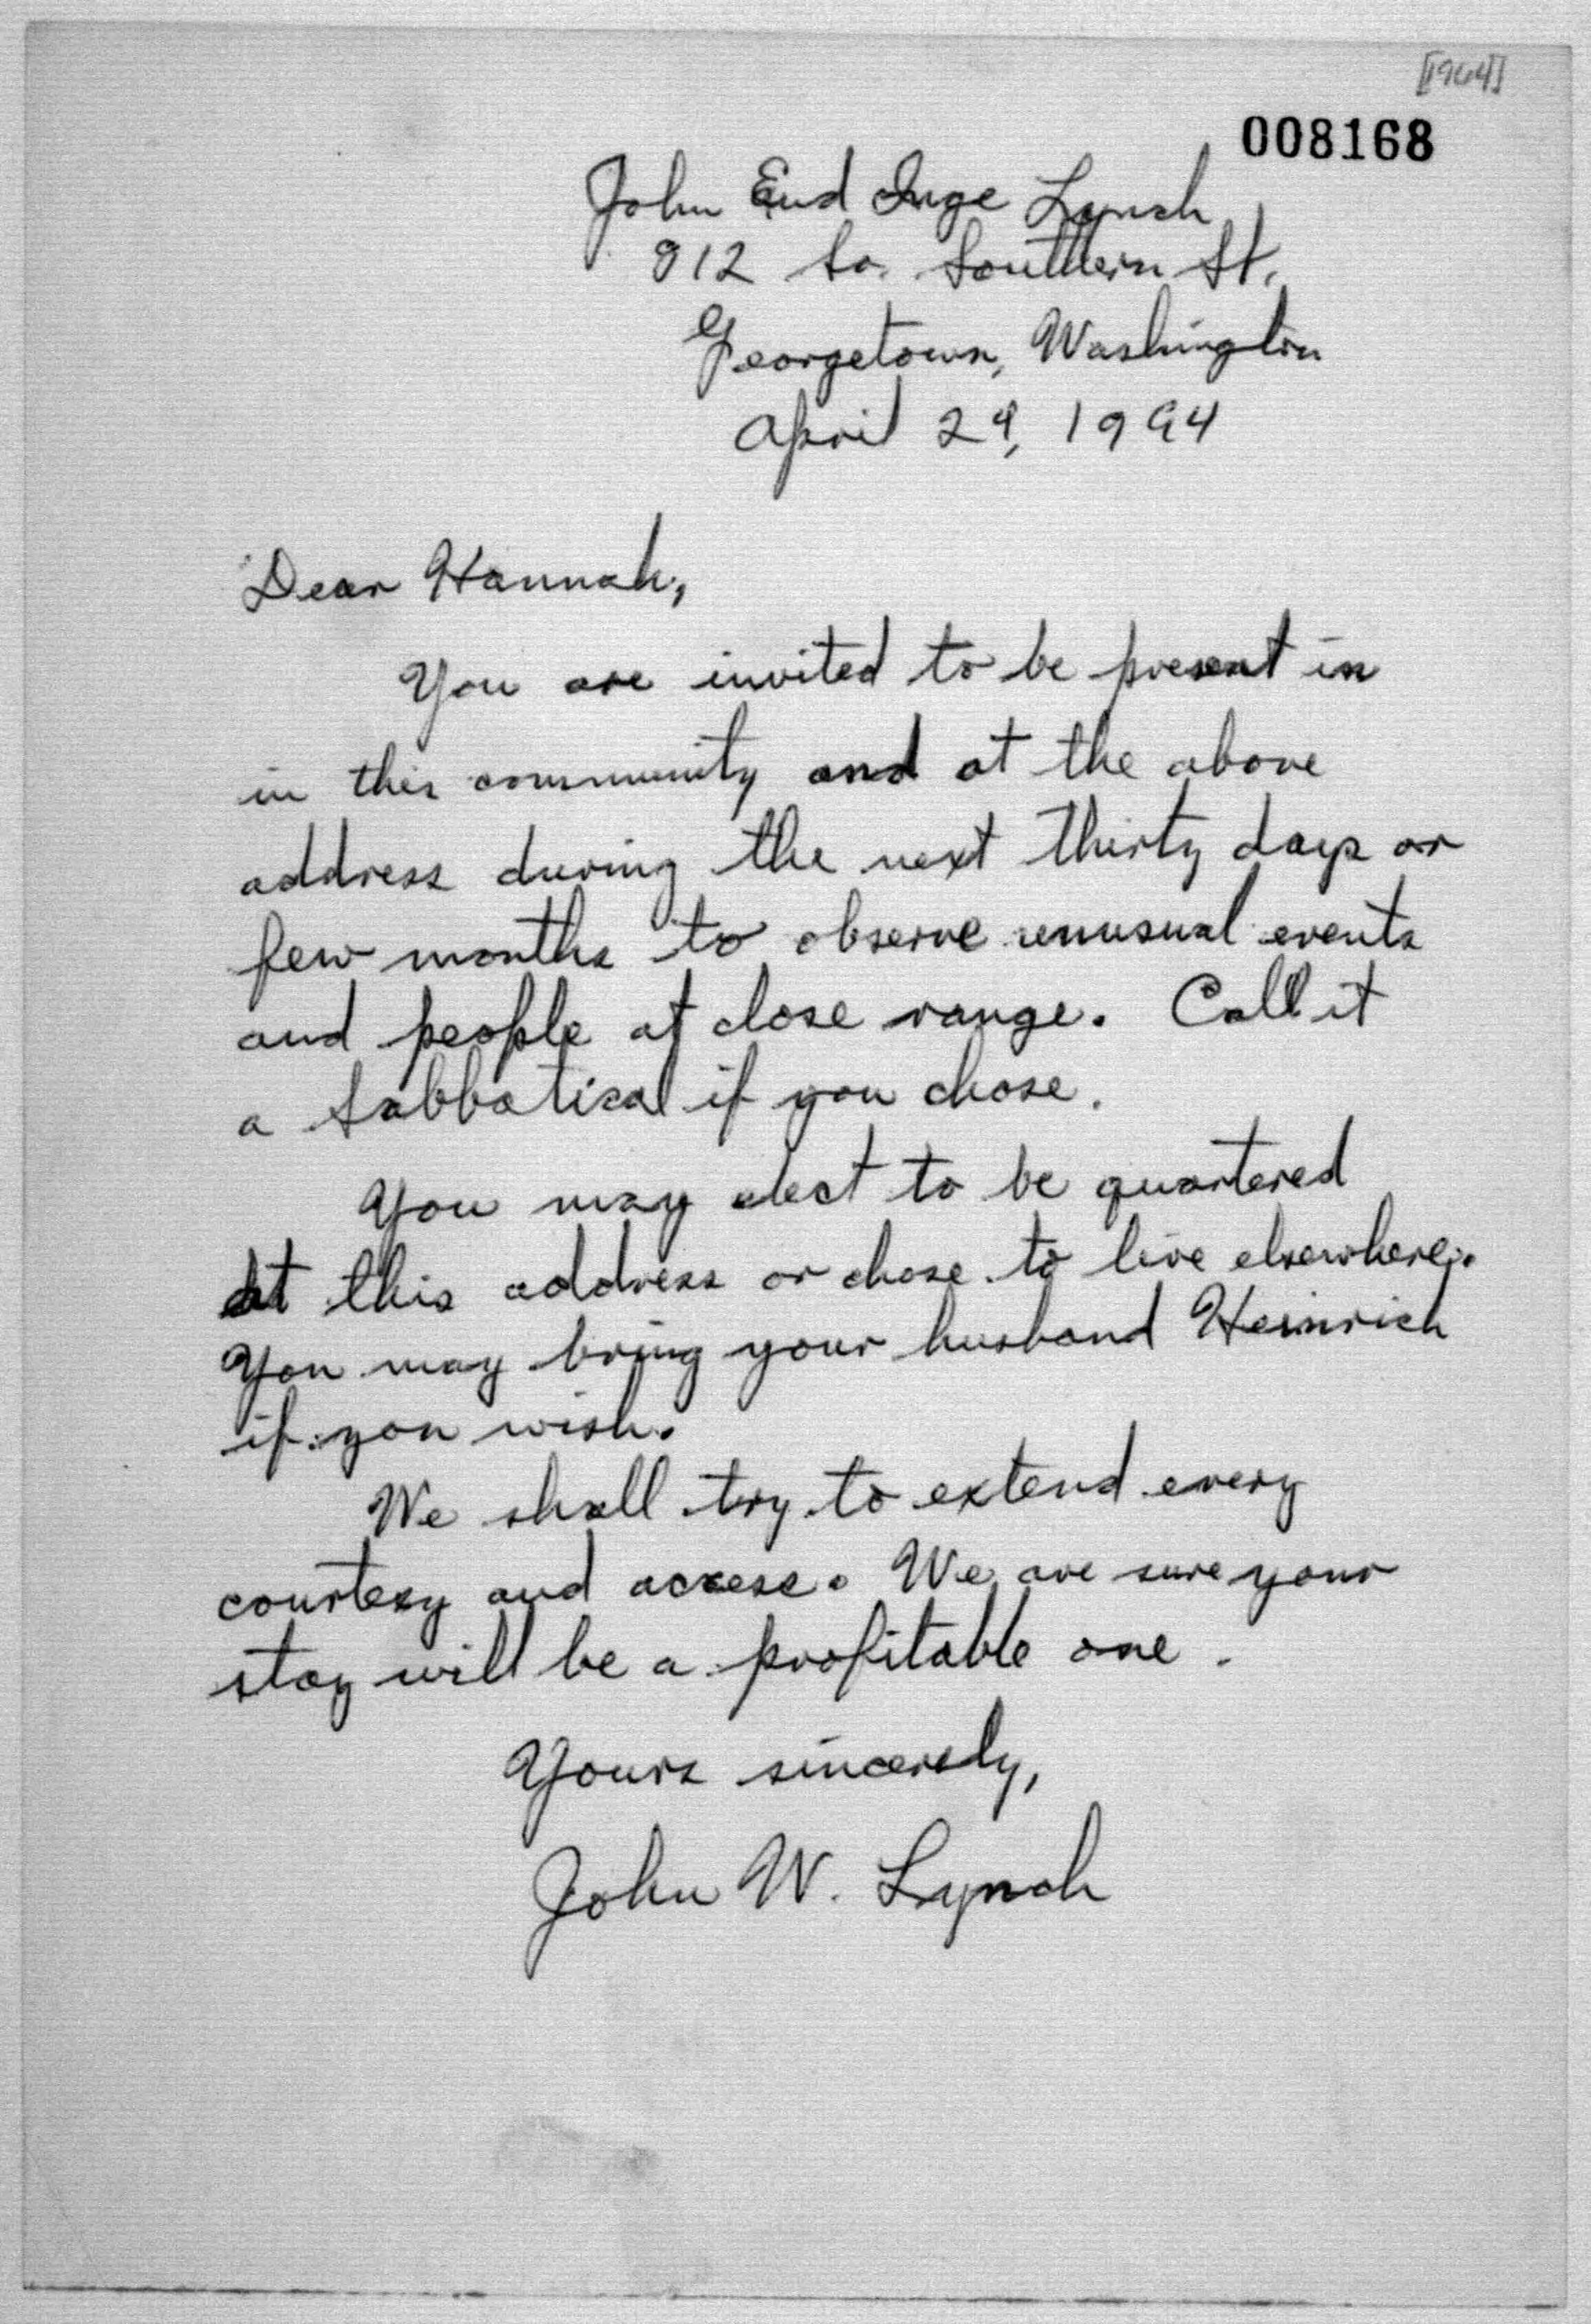 [1964]
008168
John And Inge Lynch
812 So. Southern St.
Georgetown, Washington
April 29, 1994
Dear Hannah,
You are invited to be present in
in this community and at the above
address during the next thirty days or
few months to observe unusual events
and people at close range. Call it
a Sabbatical if you chose.
You may elect to be quartered
at this address or chose to live elsewhere.
You may bring your husband Heinrich
if you wish.
We shall try to extend every
courtesy and access. We are sure your
stay will be a profitable one.
Yours sincerely,
John W. Lynch